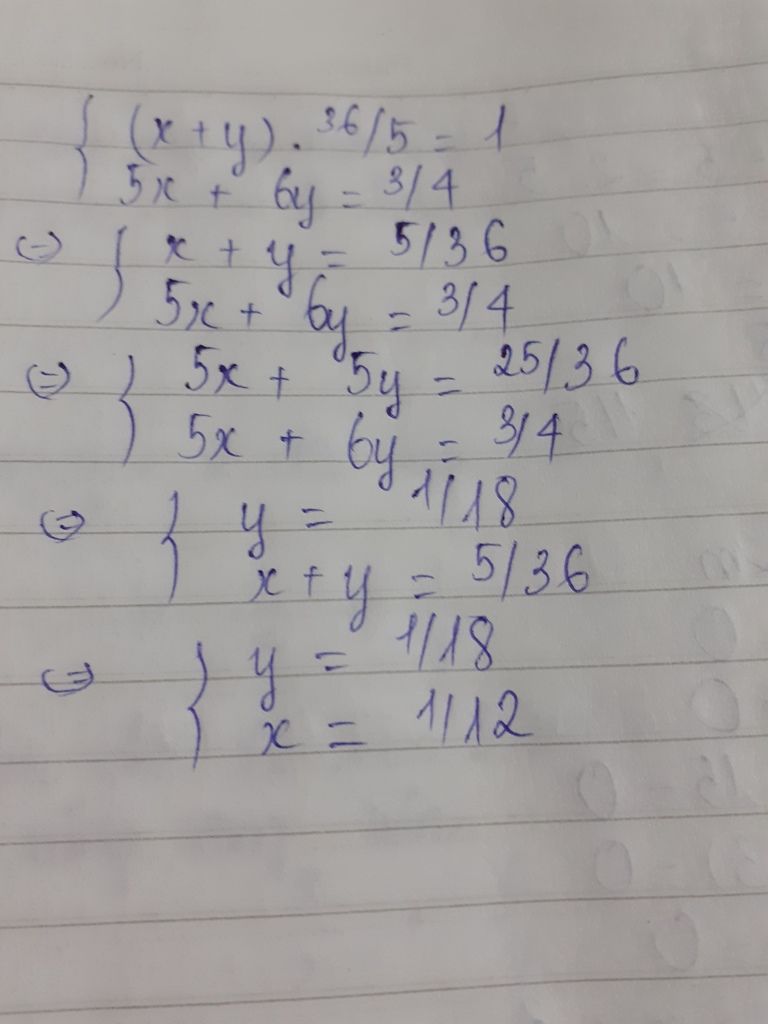 { (x + y) . 36/5 = 1
5x + 6y = 3/4
(=) { x + y = 5/36
5x + 6y = 3/4
(=) { 5x + 5y = 25/36
5x + 6y = 3/4
(=) { y = 1/18
x + y = 5/36
(=) { y = 1/18
x = 1/12